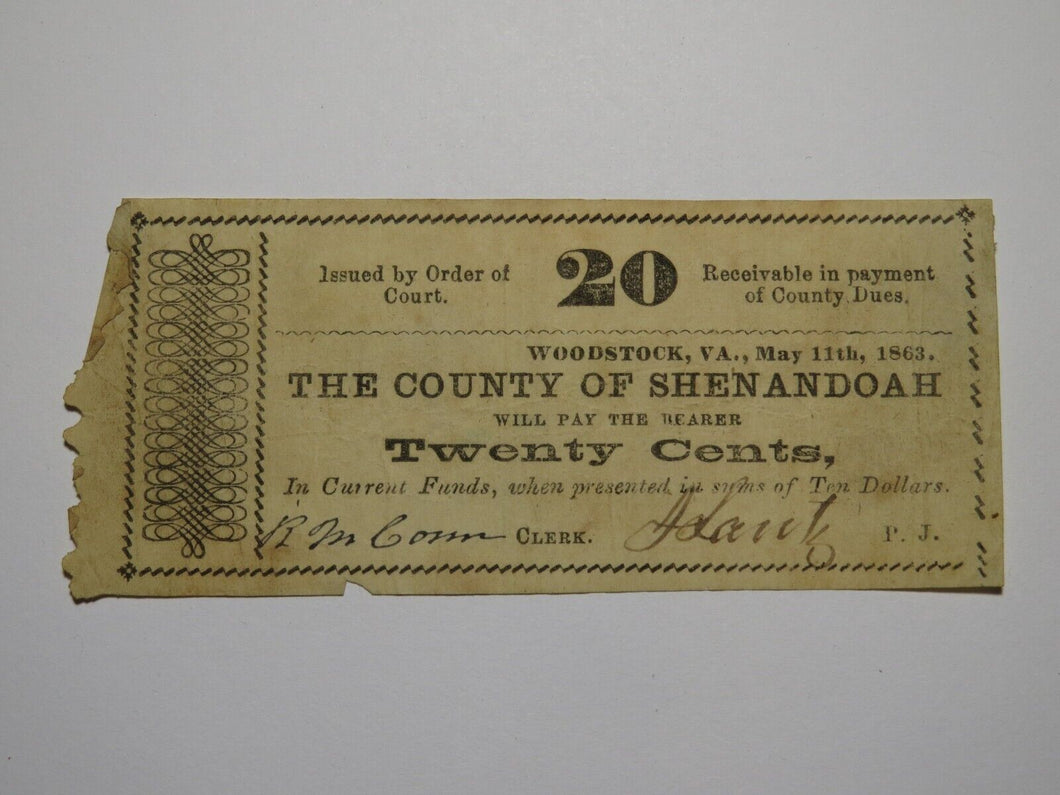 Issued by Order of Court.
20
Receivable in payment of County Dues.
WOODSTOCK, VA., May 11th, 1863.
THE COUNTY OF SHENANDOAH
WILL PAY THE BEARER
Twenty Cents,
In Current Funds, when presented in sums of Ten Dollars.
R M Conn CLERK. P. J.